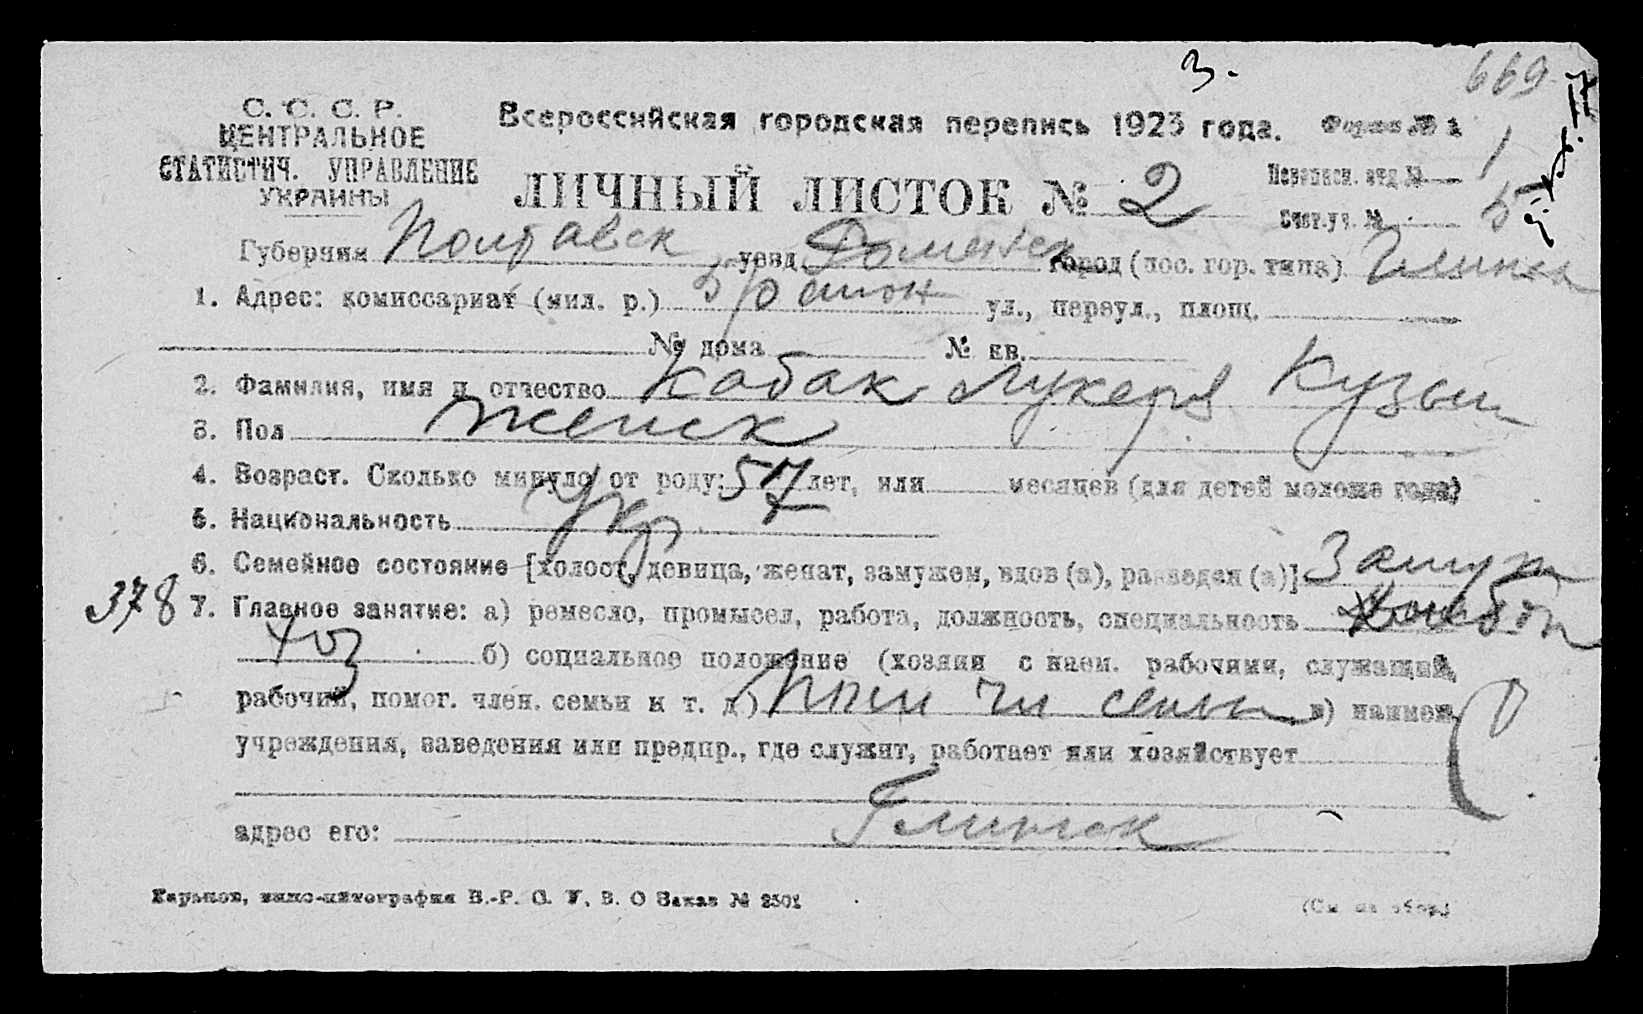 3.
669
С. С. С. Р.
ЦЕНТРАЛЬНОЕ
СТАТИСТИЧ. УПРАВЛЕНИЕ
УКРАИНЫ
Всероссийская городская перепись 1923 года. Форма № 1
ЛИЧНЫЙ ЛИСТОК № 2
Переписн. отд. № 1
Счет.уч. № 5
Губерния Полтавск уезд Роменск город (пос. гор. типа) Глинск
1. Адрес: комиссариат (мил. р.) 5 район ул., переул., площ.
№ дома № кв.
2. Фамилия, имя и отчество Кабак Лукерия Кузьм
3. Пол женск
4. Возраст. Сколько минуло от роду: 57 лет, или месяцев (для детей моложе года)
5. Национальность Укр
6. Семейное состояние [холост, девица, женат, замужем, вдов (а), разведен (а)] Замуж
378 7. Главное занятие: а) ремесло, промысел, работа, должность, специальность
хоз б) социальное положение (хозяин с наем. рабочими, служащий,
рабочий, помог. член. семьи и т. д.) чл семьи в) наимен.
учреждения, заведения или предпр., где служит, работает или хозяйствует
адрес его: Глинск
Харьков, типо-литография В.-Р. С. У. В. О Заказ № 2501
(См на обор.)